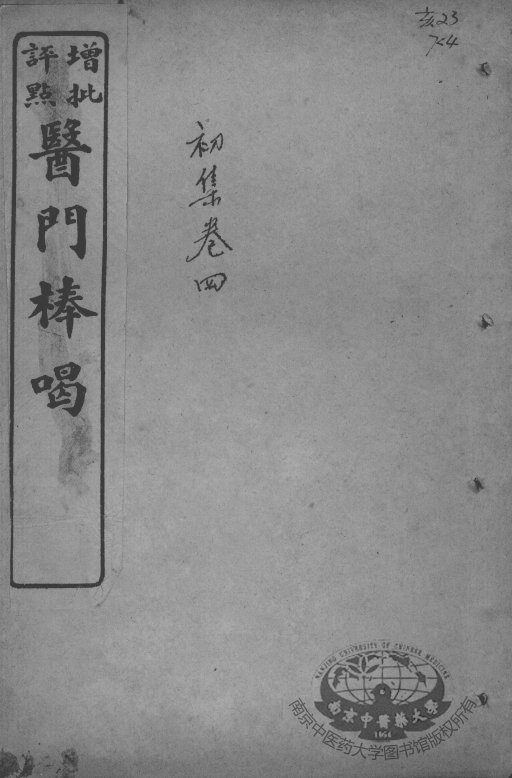 增批
評點
醫門棒喝
初集卷四
亥23
754
NANJING UNIVERSITY OF CHINESE MEDICINE
南京中醫藥大學
1954
南京中医药大学图书馆版权所有